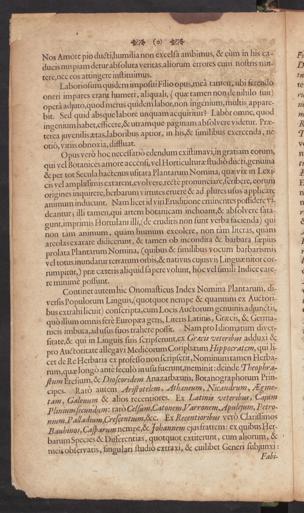 (o)
Nos Amore pio ducti, humilia non excelsa ambimus, & cùm in his ca-
ducis nuspiam detur absoluta veritas, aliorum errores cum nostris mu-
tere, nec eos attingere instituimus.
Laboriosum quidem impositi Filio opus, meâ tamen, ubi ferendo
oneri impares erant humeri, aliquali, (que tamen non de nihilo fuit)
operâ adjuto, quod metus quidem labor, non ingenium, multis appare-
bit. Sed quid absque labore unquam acquiritur? Labor omne, quod
ingenium habet, efficere, & utramque paginam absolvere videtur. Præ-
terea juvenilis ætas, laboribus aptior, in his, & similibus exercenda, ne
otiò, vitiis obnoxia, diffluat.
Opus verò hoc necessariò edendum existimavi, in gratiam eorum,
qui vel Botanices amore accensi, vel Horticulturæ studiò ducti, genuina
& per tot Secula hactenus usitata Plantarum Nomina, quæ vix in Lexi-
cis vel amplissimis extarent, evolvere, rectè pronunciare, scribere, eorum
origines inquirere, herbarum virtutes eruere & ad plures usus applicare,
animum inducunt. Nam licet id viri Eruditione eminentes posside
deantur: illi tamen, qui artem botanicam inchoant, & absolvere fata-
gunt, imprimis Hortulani illi, (de eruditis non sunt verba facienda) qui
non tam animum, quàm humum excolere, non tàm literas, quàm
areolas exarare didicerunt, & tamen ob incondita & barbara sæpius
prolata Plantarum Nomina, (quibus & similibus vocum barbarismis
vel totus mundanus terrarum orbis, & nativus cujusvis Linguæ nitor cor-
rumpitur,) præ cæteris aliquid sapere volunt, hoc vel simili Indice care-
re minimè possunt.
Continet autem hic Onomasticus Index Nomina Plantarum, di-
versis Populorum Linguis, (quotquot nempe & quantum ex Auctori-
bus extrahi licuit) conscripta, cum Locis Auctorum genuinis adjunctis,
quò illum omnis ferè Europæa gens, Literis Latinis, Græcis, & Germa-
nicis imbuta, ad usus suos traherè possit. Nam pro Idiomatum diver-
sitate, & qui in Linguis suis scripserunt, ex Græcis veteribus adduxi &
pro Auctoritate allegavi Medicorum Coriphæum Hippocratem, qui li-
cet de Re Herbaria ex professo non scripserit, Nominum tamen Herba-
rum, quæ longò ante seculò in usu fuerunt, meminit: deinde Theophra-
stum Eresium, & Dioscoridem Anazarbæum, Botanographorum Prin-
cipes. Rarò autem Aristotelem, Athenæum, Nicandrum, Ægine-
tam, Galenum & alios recentiores. Ex Latinis veteribus, Cajum
Plinium secundum: rarò Celsum, Catonem, Varronem, Apulejum, Petro-
nium, Palladium, Crescentium, &c. Ex Recentioribus verò Clarissimos
Bauhinos, Casparum nempe, & Johannem ejus fratrem: ex quibus Her-
barum Species & Differentias, quotquot extiterunt, cum aliorum, &
meis observatis, singulari studio extraxi, & cuilibet Generi subjunxi:
Fabi-